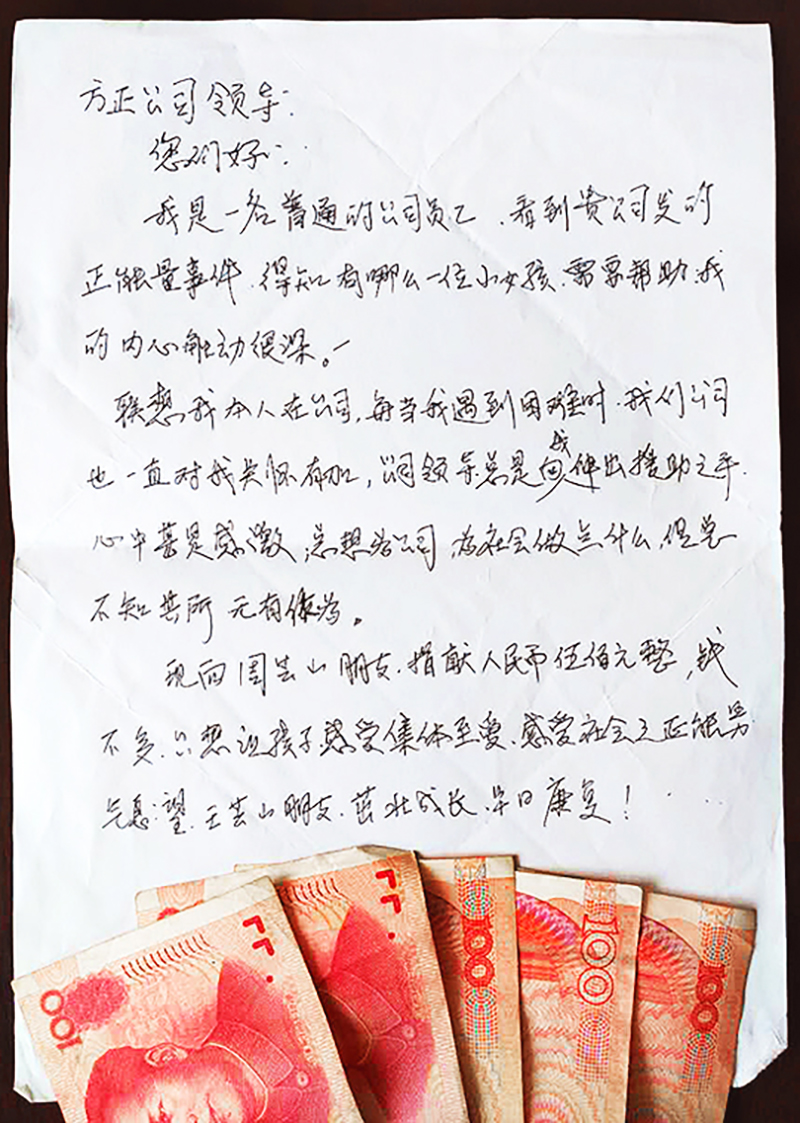 方正公司领导:
您们好:
我是一名普通的公司员工，看到贵公司发的
正能量事件，得知有哪么一位小女孩，需要帮助，我
的内心触动很深。
联想我本人在公司，每当我遇到困难时，我们公司
也一直对我关怀有加，公司领导总是向我伸出援助之手，
心中甚是感激，总想为公司，为社会做点什么，但总
不知其所 无有作为。
现向 朋友，捐献人民币伍佰元整，钱
不多，只想让孩子感受集体至爱，感受社会之正能量
愿望， 朋友，茁壮成长，早日康复！
100
100
100
100